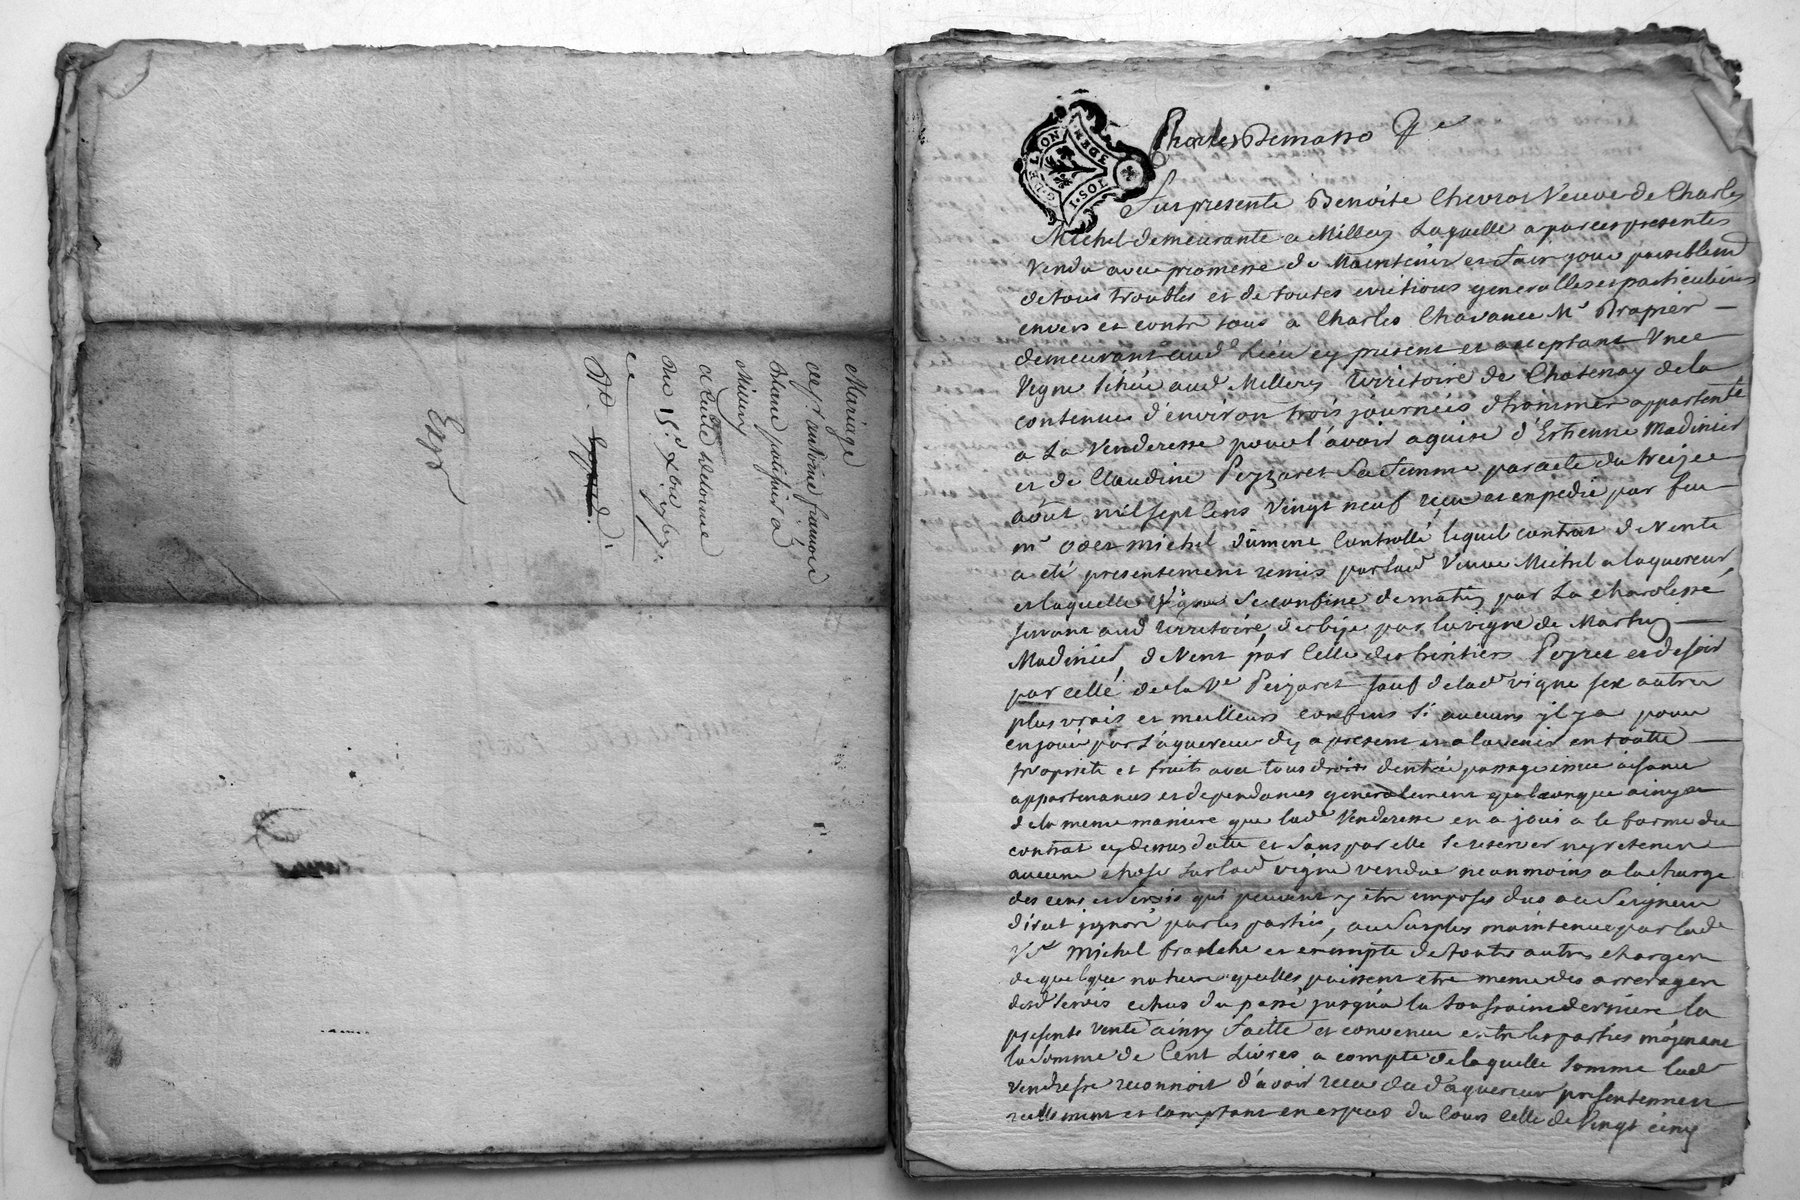 Mariage
de Sr. antoine francois
blanc patissier à
Millery
a Cecile
du 15e. xbre
ce
Expé
G. DE LYON
1. SOL 3 DEN
Charles Demasso
Fut presente Benoite Chevrot Veuve de Charles
Michel demeurante a Millery Laquelle a par ces presentes
Vendu avec promesse de Maintenir et faire jouir paisiblemt
de tous troubles et de toutes evictions generalles et particulieres
envers et contre tous a Charles Chavance Me Drapier
demeurant audt Lieu cy present et acceptant Une
Vigne scituée aud Millery territoire de Chatenay de la
contenue d'environ trois journées d'hommes appartente
a La Venderesse pour l'avoir aquise d'Estienne Madinier
et de Claudine Peyzaret Sa femme par acte du treize
aôut mil sept Cens Vingt neuf receu et expedié par feu
me michel dument Controllé lequel contrat de Vente
a eté presentement remis par lade Veuve Michel a laquereur
et laquelle Vigne Se confine de matin par La charolesse
servant aud territoire, de bize par la vigne de Martin
Madinier, de Vent par Celle des heritiers Peyret et de soir
par celle de la Ve Peizaret sauf de lade vigne ses autres
plus vrais et meilleurs confins Si aucuns il y a pour
en jouir par L'aquereur dez a present et a lavenir en toutte
propriete et fruits avec tous droits d'entrée passage issue aisance
appartenances et dependances generalement quelconque ainsy et
de la meme maniere que lade Venderesse en a joui a la forme du
contrat cy dessus datté et Sans par elle Se reserver ny retenir
aucune chose Sur lade vigne vendue neanmoins a la charge
des cens et Servis qui peuvent y etre imposés dus au Seigneur
direct ignoré par les parties, au Surplus maintenue par lade
Ve Michel franche et exempte de toutes autres charges
de quelque nature quelles puissent etre meme des arrerages
desd Servis echus du passé jusqua la toussaint derniere la
presente Vente ainsy faitte et convenue entre les parties moyenant
la Somme de Cent Livres a compte de laquelle Somme lade
Venderesse reconnoit d'avoir receu du d aquereur presentement
reellement et comptant en especes du Cours Celle de Vingt cinq